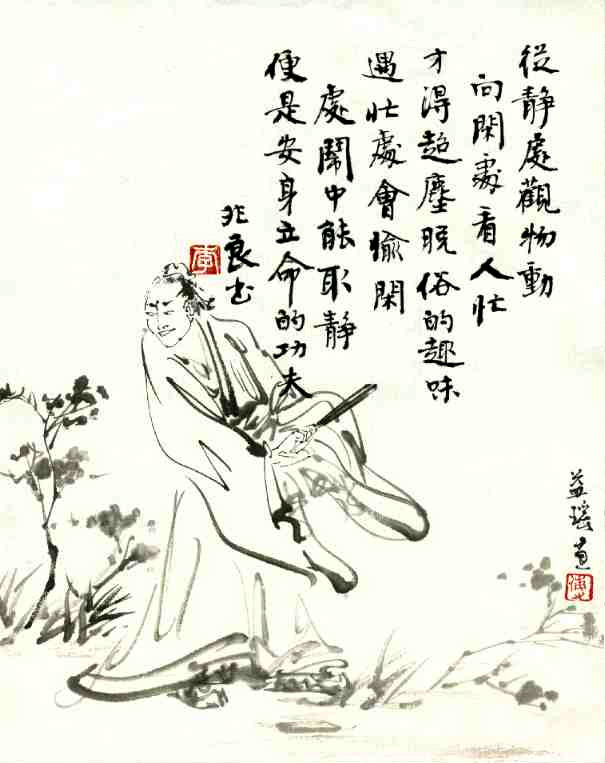 從靜處觀物動
向閑處看人忙
才得超塵脫俗的趣味
遇忙處會偷閑
處鬧中能取靜
便是安身立命的功夫
兆良书
李
益瑤画